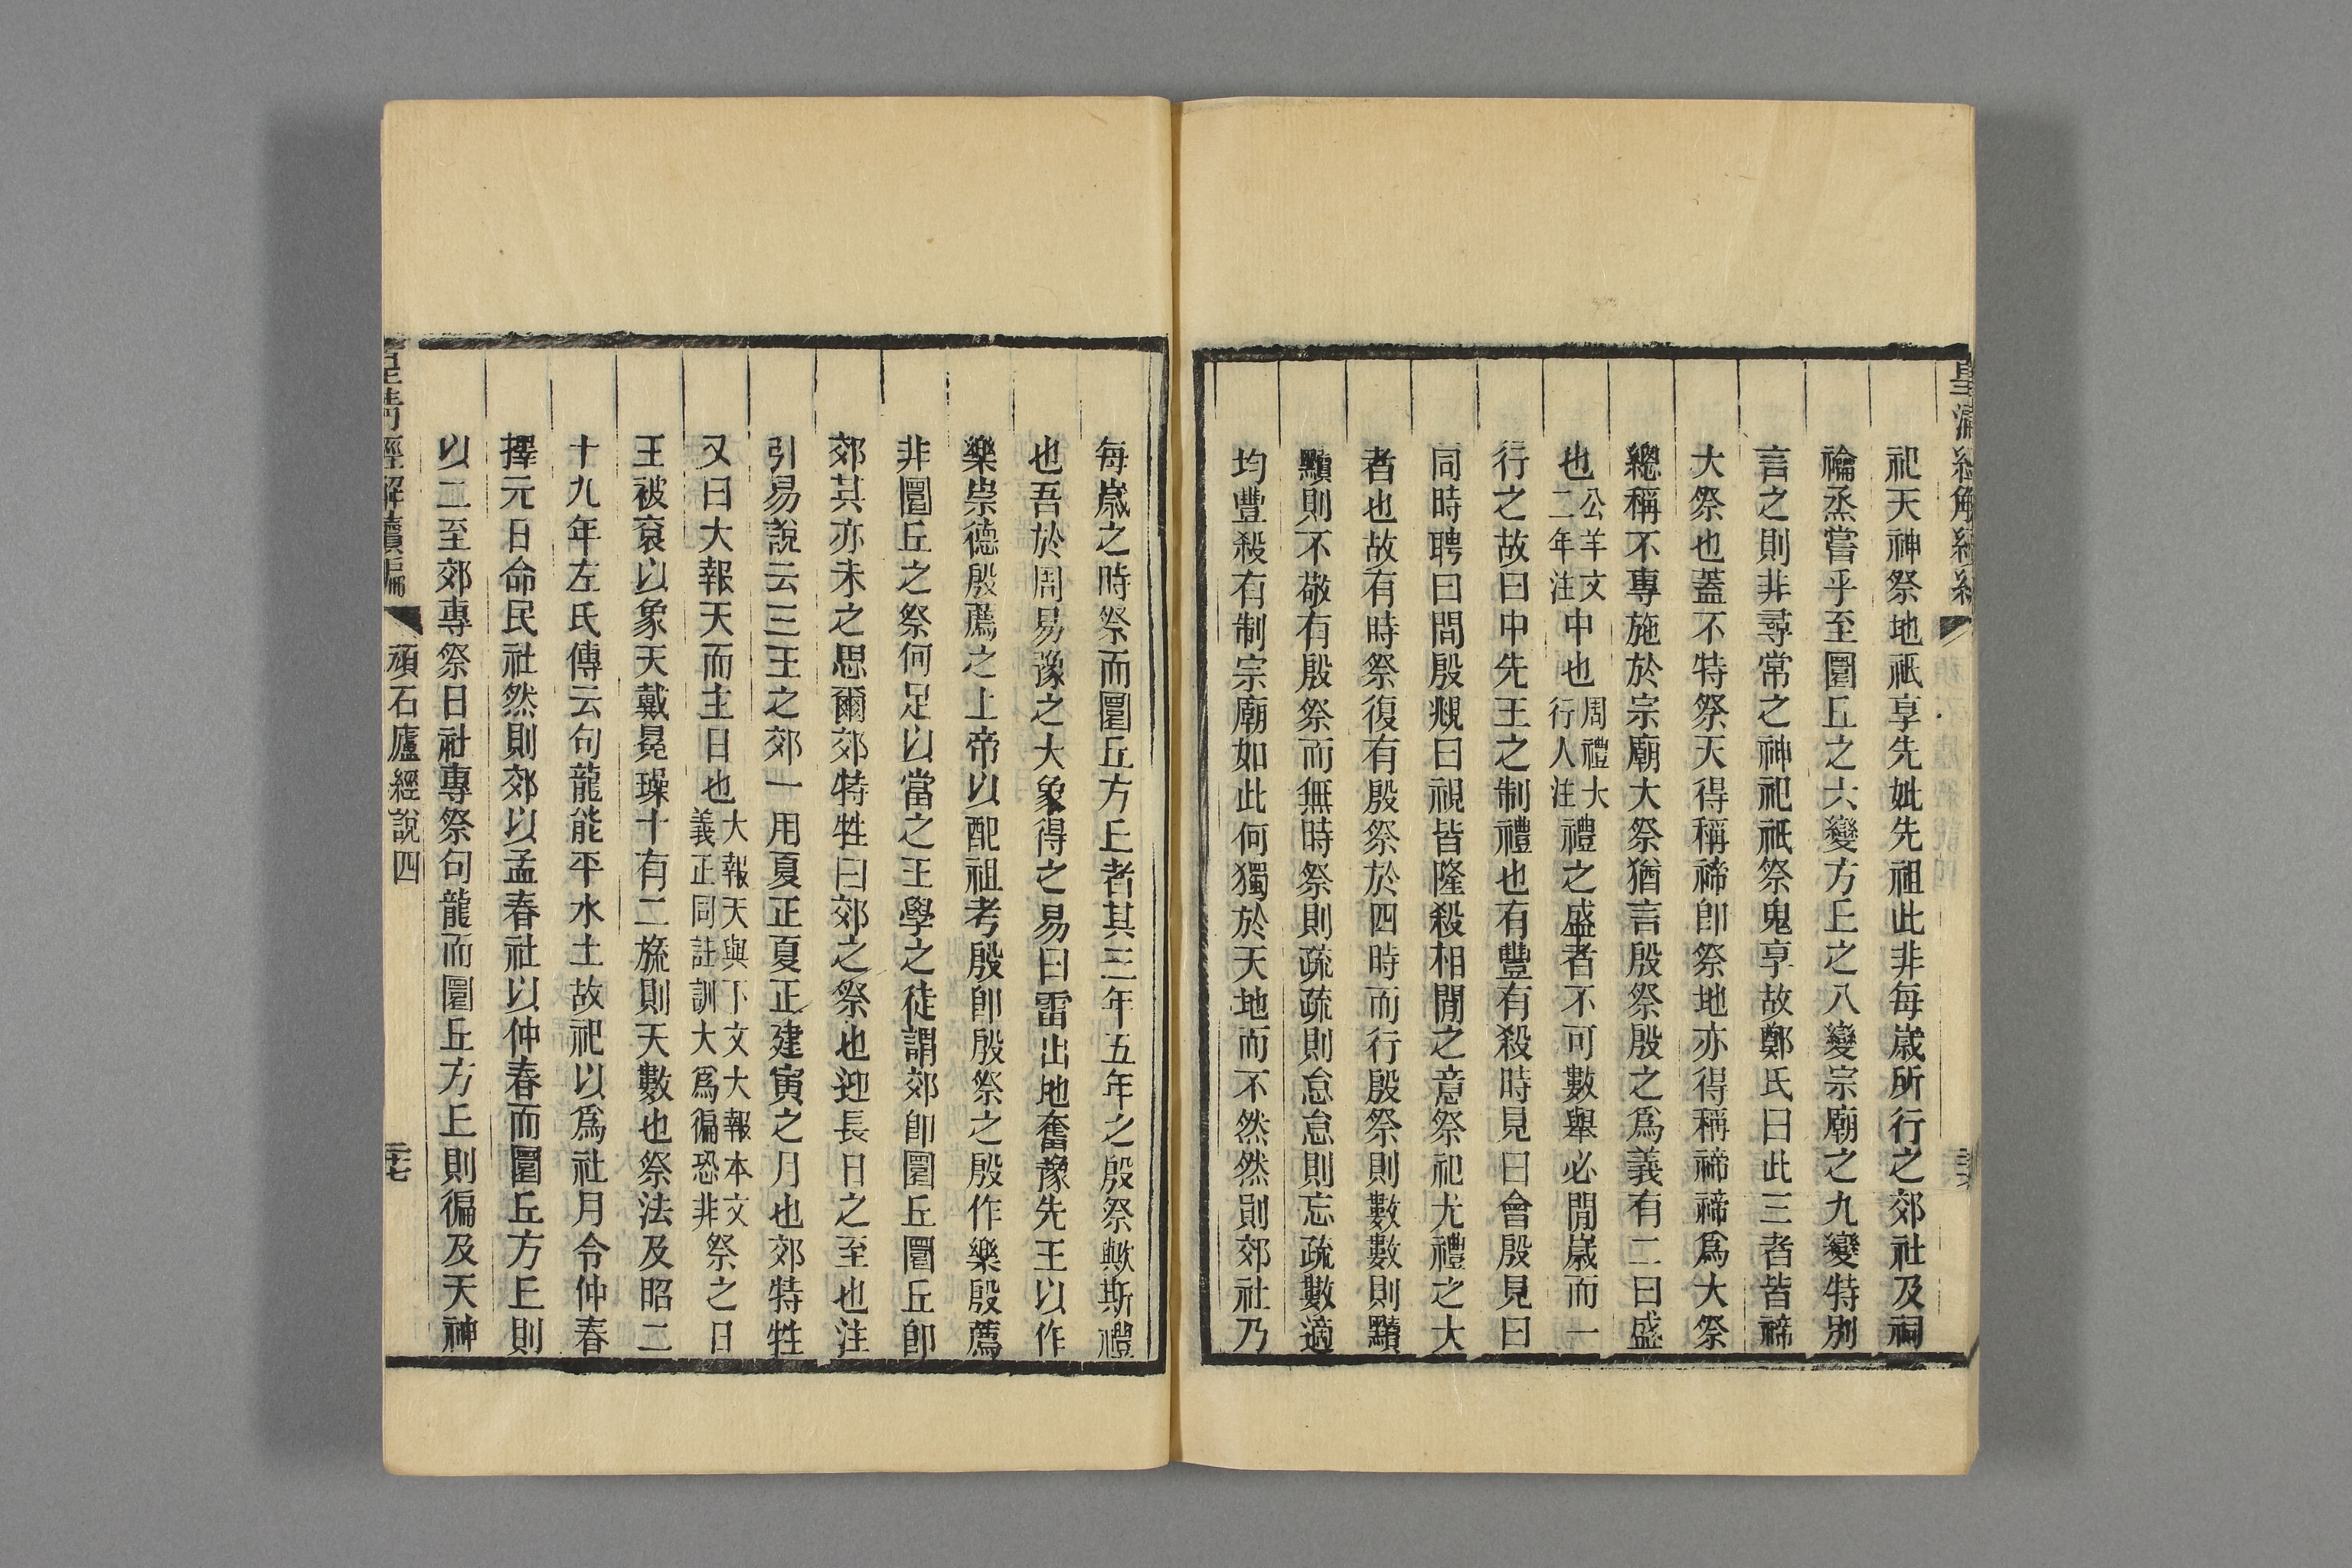 祀天神祭地祇享先妣先祖此非每歲所行之郊社及祠
禴烝嘗乎至圜丘之六變方丘之八變宗廟之九變特別
言之則非尋常之神祀祇祭鬼享故鄭氏曰此三者皆禘
大祭也蓋不特祭天得稱禘卽祭地亦得稱禘禘爲大祭
總稱不專施於宗廟大祭猶言殷祭殷之爲義有二曰盛
也公羊文二年注中也周禮大行人注禮之盛者不可數舉必閒歲而一
行之故曰中先王之制禮也有豐有殺時見曰會殷見曰
同時聘曰問殷覜曰視皆隆殺相閒之意祭祀尤禮之大
者也故有時祭復有殷祭於四時而行殷祭則數數則黷
黷則不敬有殷祭而無時祭則疏疏則怠怠則忘疏數適
均豐殺有制宗廟如此何獨於天地而不然然則郊社乃
每歲之時祭而圜丘方丘者其三年五年之殷祭歟斯禮
也吾於周易豫之大象得之易曰雷出地奮豫先王以作
樂崇德殷薦之上帝以配祖考殷卽殷祭之殷作樂殷薦
非圜丘之祭何足以當之王學之徒謂郊卽圜丘圜丘卽
郊其亦未之思爾郊特牲曰郊之祭也迎長日之至也注
引易說云三王之郊一用夏正夏正建寅之月也郊特牲
又曰大報天而主日也大報天與下文大報本文義正同註訓大爲徧恐非祭之日
王被袞以象天戴冕璪十有二旒則天數也祭法及昭二
十九年左氏傳云句龍能平水土故祀以爲社月令仲春
擇元日命民社然則郊以孟春社以仲春而圜丘方丘則
以二至郊專祭日社專祭句龍而圜丘方丘則徧及天神
皇清經解續編
頑石廬經說四